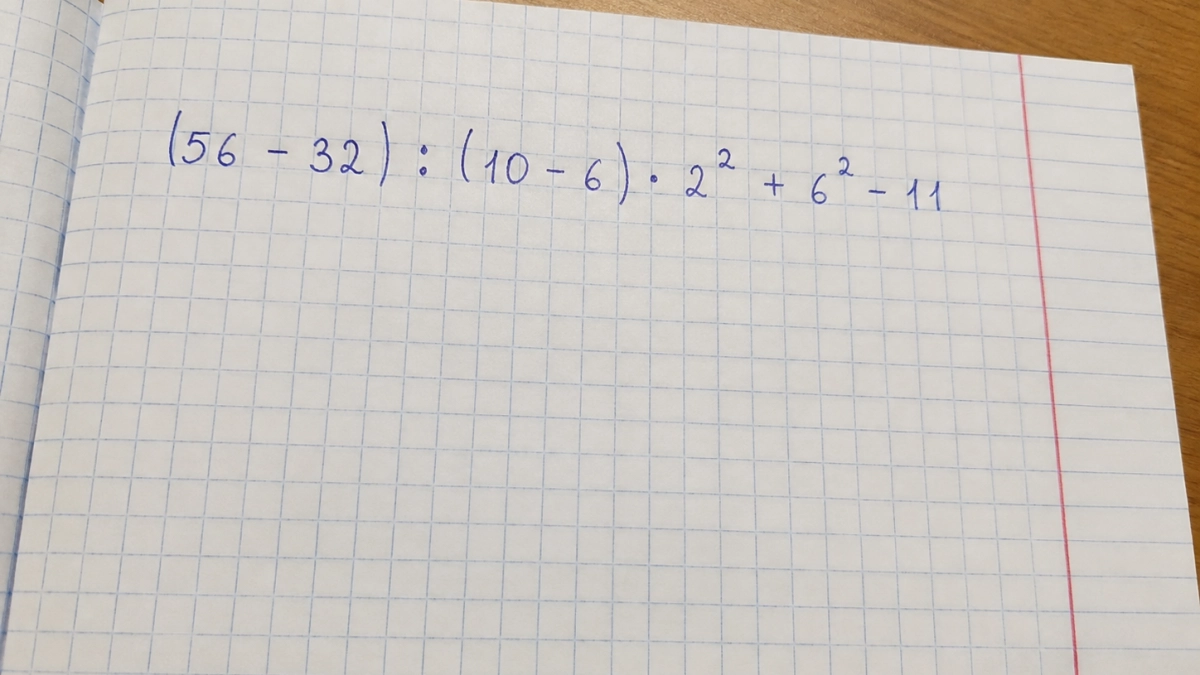 (56 - 32) : (10 - 6) · 2² + 6² - 11